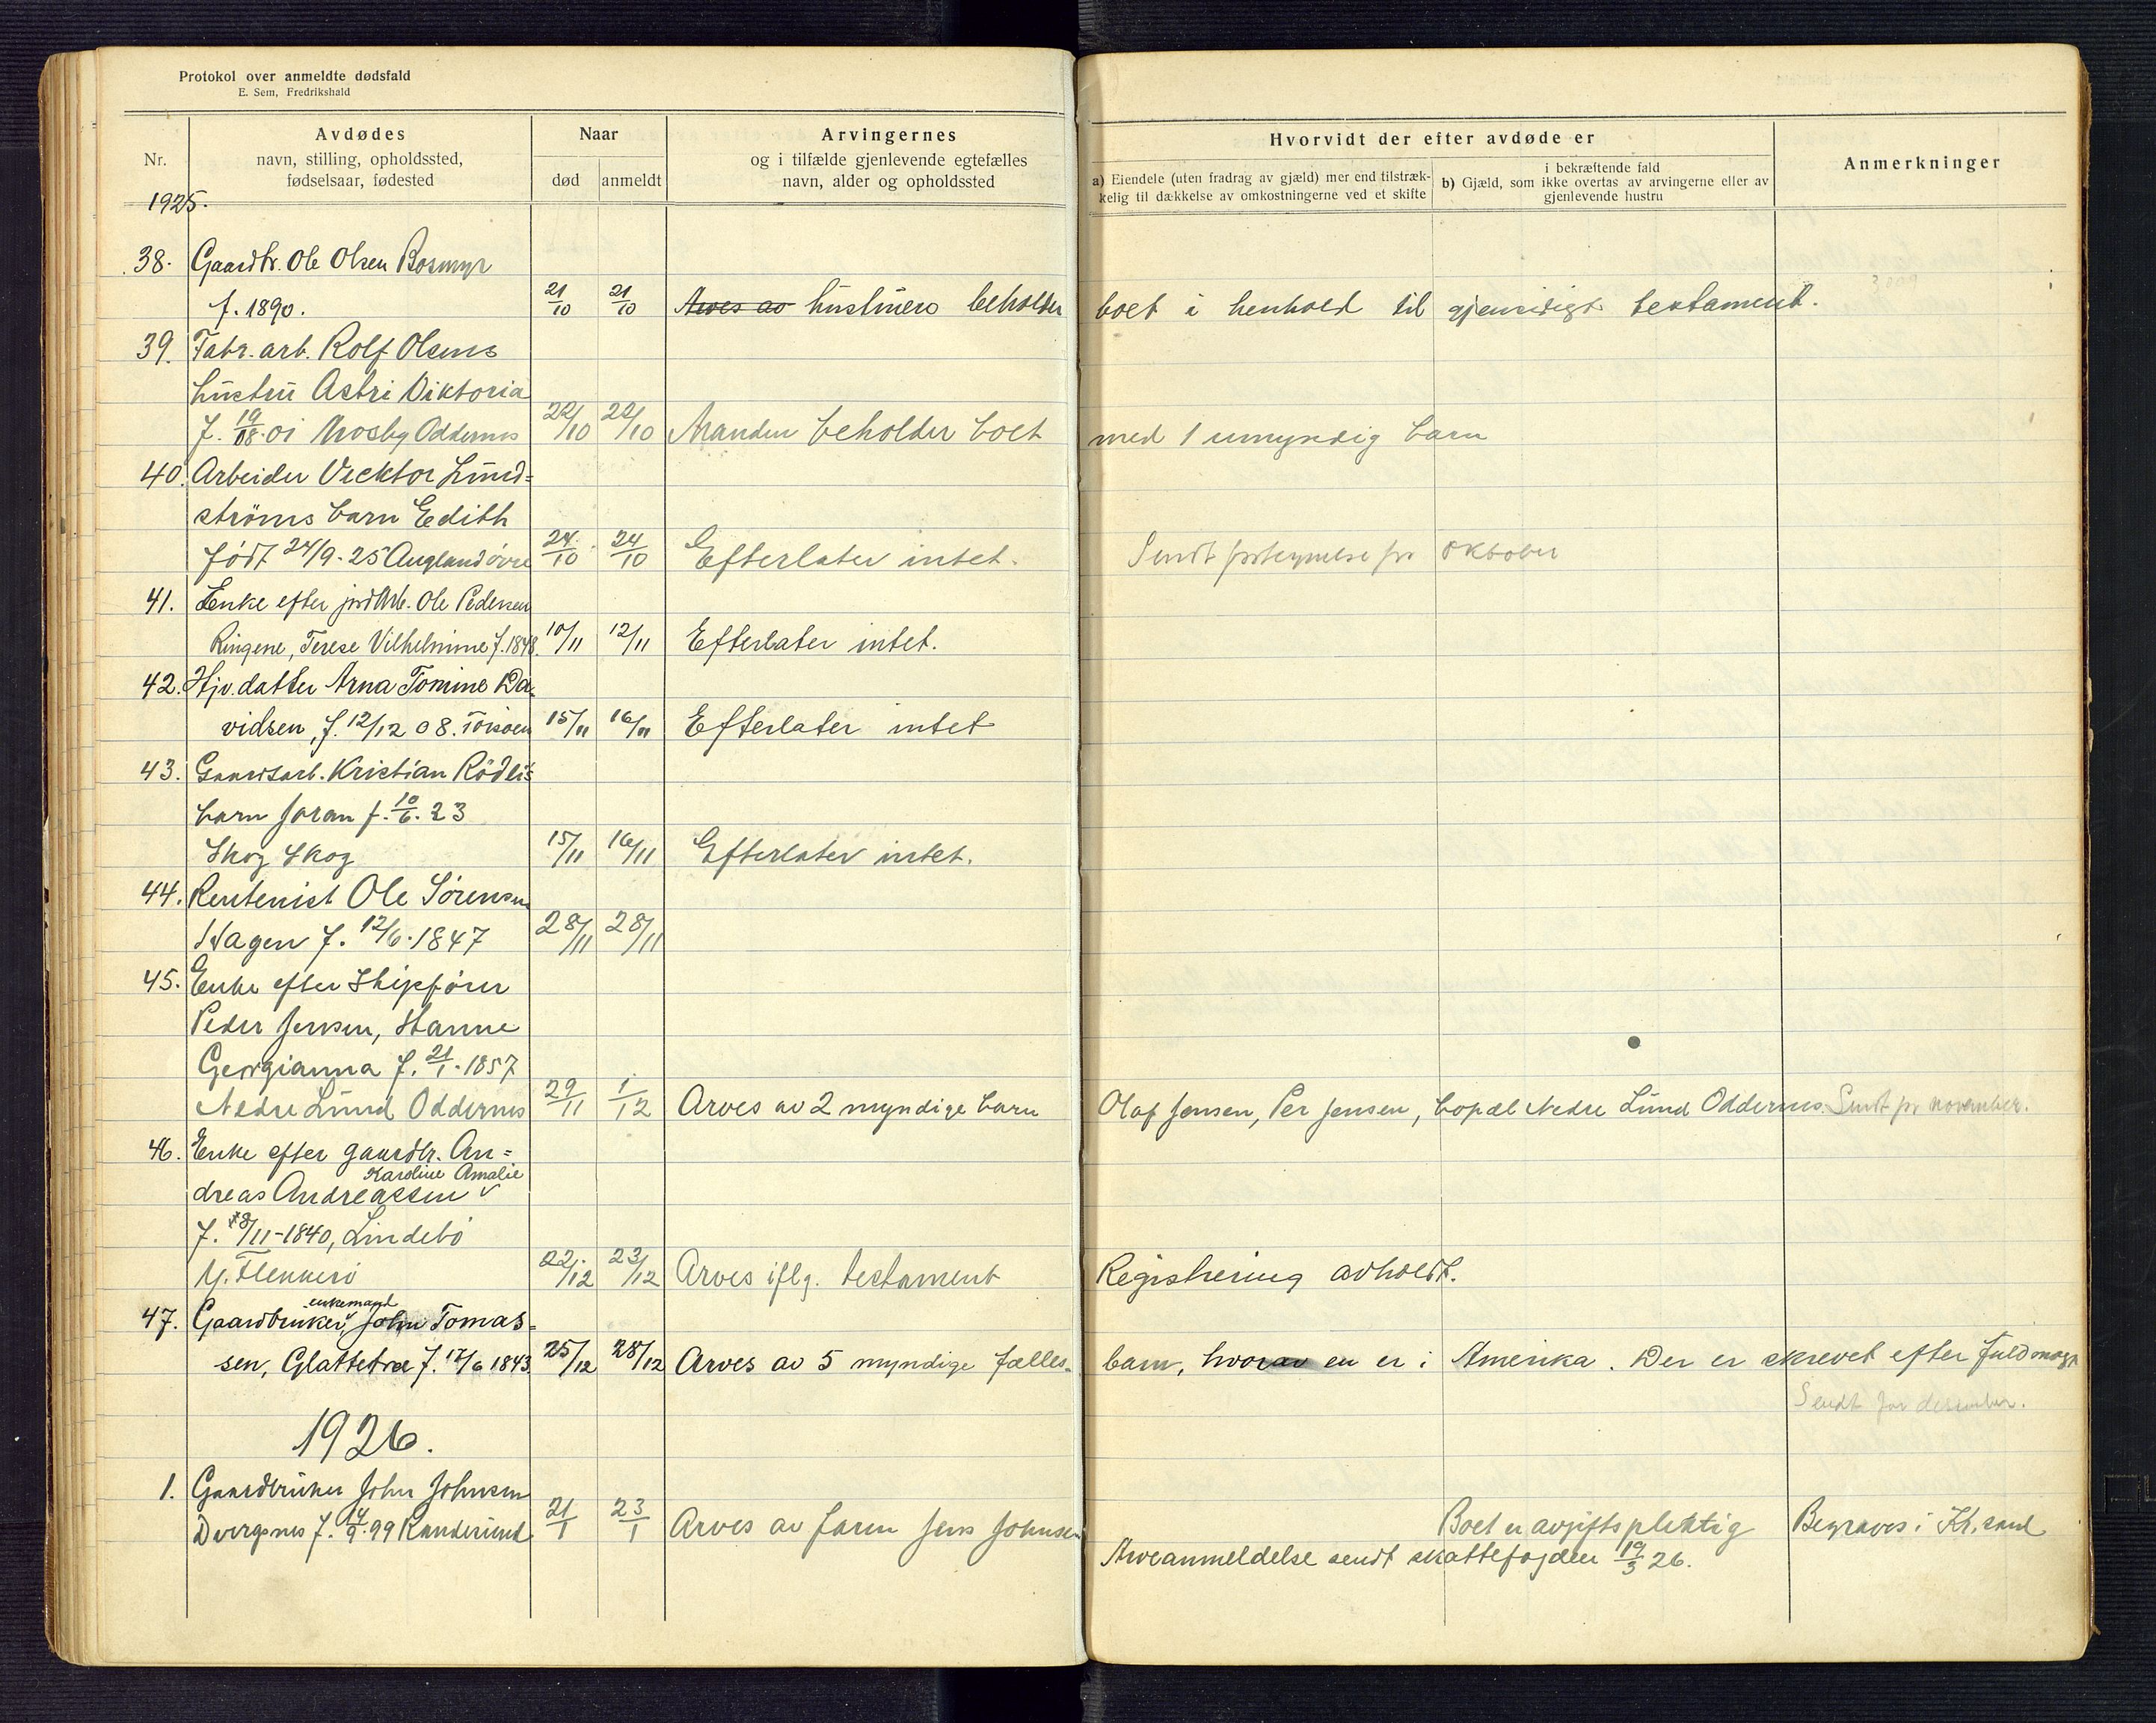 Protokol over anmeldte dødsfald
E. Sem, Fredrikshald
Nr.
Avdødes
navn, stilling, opholdssted,
fødselsaar, fødested
Naar
død
anmeldt
Arvingernes
og i tilfælde gjenlevende egtefælles
navn, alder og opholdssted
Hvorvidt der efter avdøde er
a) Eiendele (uten fradrag av gjæld) mer end tilstræk-
kelig til dækkelse av omkostningerne ved et skifte
i bekræftende fald
b) Gjæld, som ikke overtas av arvingerne eller av
gjenlevende hustru
Anmerkninger
1925.
38. Gaardbr. Ole Olsen Bosmyr
f. 1890. 21/10 21/10 Arves av hustruen beholder boet i henhold til gjensidigt testament.
39. Fabr. arb. Rolf Olsens
hustru Astri Viktoria
f. 19/8.01 Mosby Oddernes 22/10 22/10 Manden beholder boet med 1 umyndig barn
40. Arbeider Vecktor Lund=
ströms barn Edith
født 24/9-25 Augland øvre 24/10 24/10 Efterlater intet. Sendt fortegnelse for oktober
41. Enke efter jordarb. Ole Pedersen
Ringene, Terese Vilhelmine f. 1848. 10/11 12/11 Efterlater intet.
42. Hjv. datter Arna Tomine Da-
vidsen, f. 12/12 08. 15/11 16/11 Efterlater intet
43. Gaardsarb. Kristian Rödli's
barn Joran f. 10/6.23
Skog Skog 15/11 16/11 Efterlater intet.
44. Rentenist Ole Sörensen
Hagen f. 12/6.1847 28/11 28/11
45. Enke efter Skipsförer
Peder Jensen, Hanne
Georgianna f. 21/1.1857
Nedre Lund Oddernes 29/11 1/12 Arves av 2 myndige barn Olaf Jensen, Per Jensen, bopæl Nedre Lund Oddernes. Sendt for november.
46. Enke efter gaardbr. An=
Karoline Amalie
dreas Andreassen v
f. 8/11-1840, Lindebö
Y. Flekkerö 22/12 23/12 Arves iflg. testament Registrering avholdt.
enkemand
47. Gaardbruker, John Tomas=
sen, Glattetræ f. 17/6 1843 25/12 28/12 Arves av 5 myndige fælles- barn, hvorav en er i Amerika. Der er skrevet efter fuldmagt
Sendt for desember.
1926.
1. Gaardbruker John Johnsen
Dvergsnes f. 14/9.99 Randesund 21/1 23/1 Arves av faren Jens Johnsen Boet er avgiftspliktig Begraves i Kr.sand
Arveanmeldelse sendt skattefogden 19/3 26.